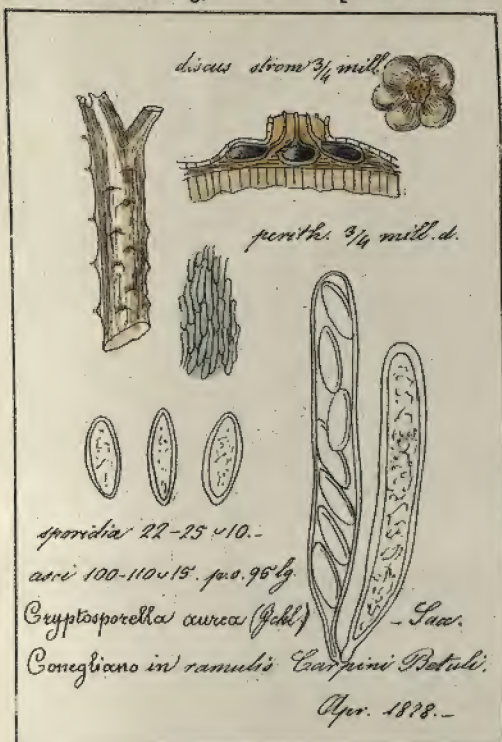 discus strom 3/4 mill.
perith. 3/4 mill. d.
sporidia 22-25 v 10.-
asci 100-110 v 15. p.s. 95 lg.
Cryptosporella aurea (Fckl.) - Sacc.
Conegliano in ramulis Carpini Betuli.
Apr. 1878.-